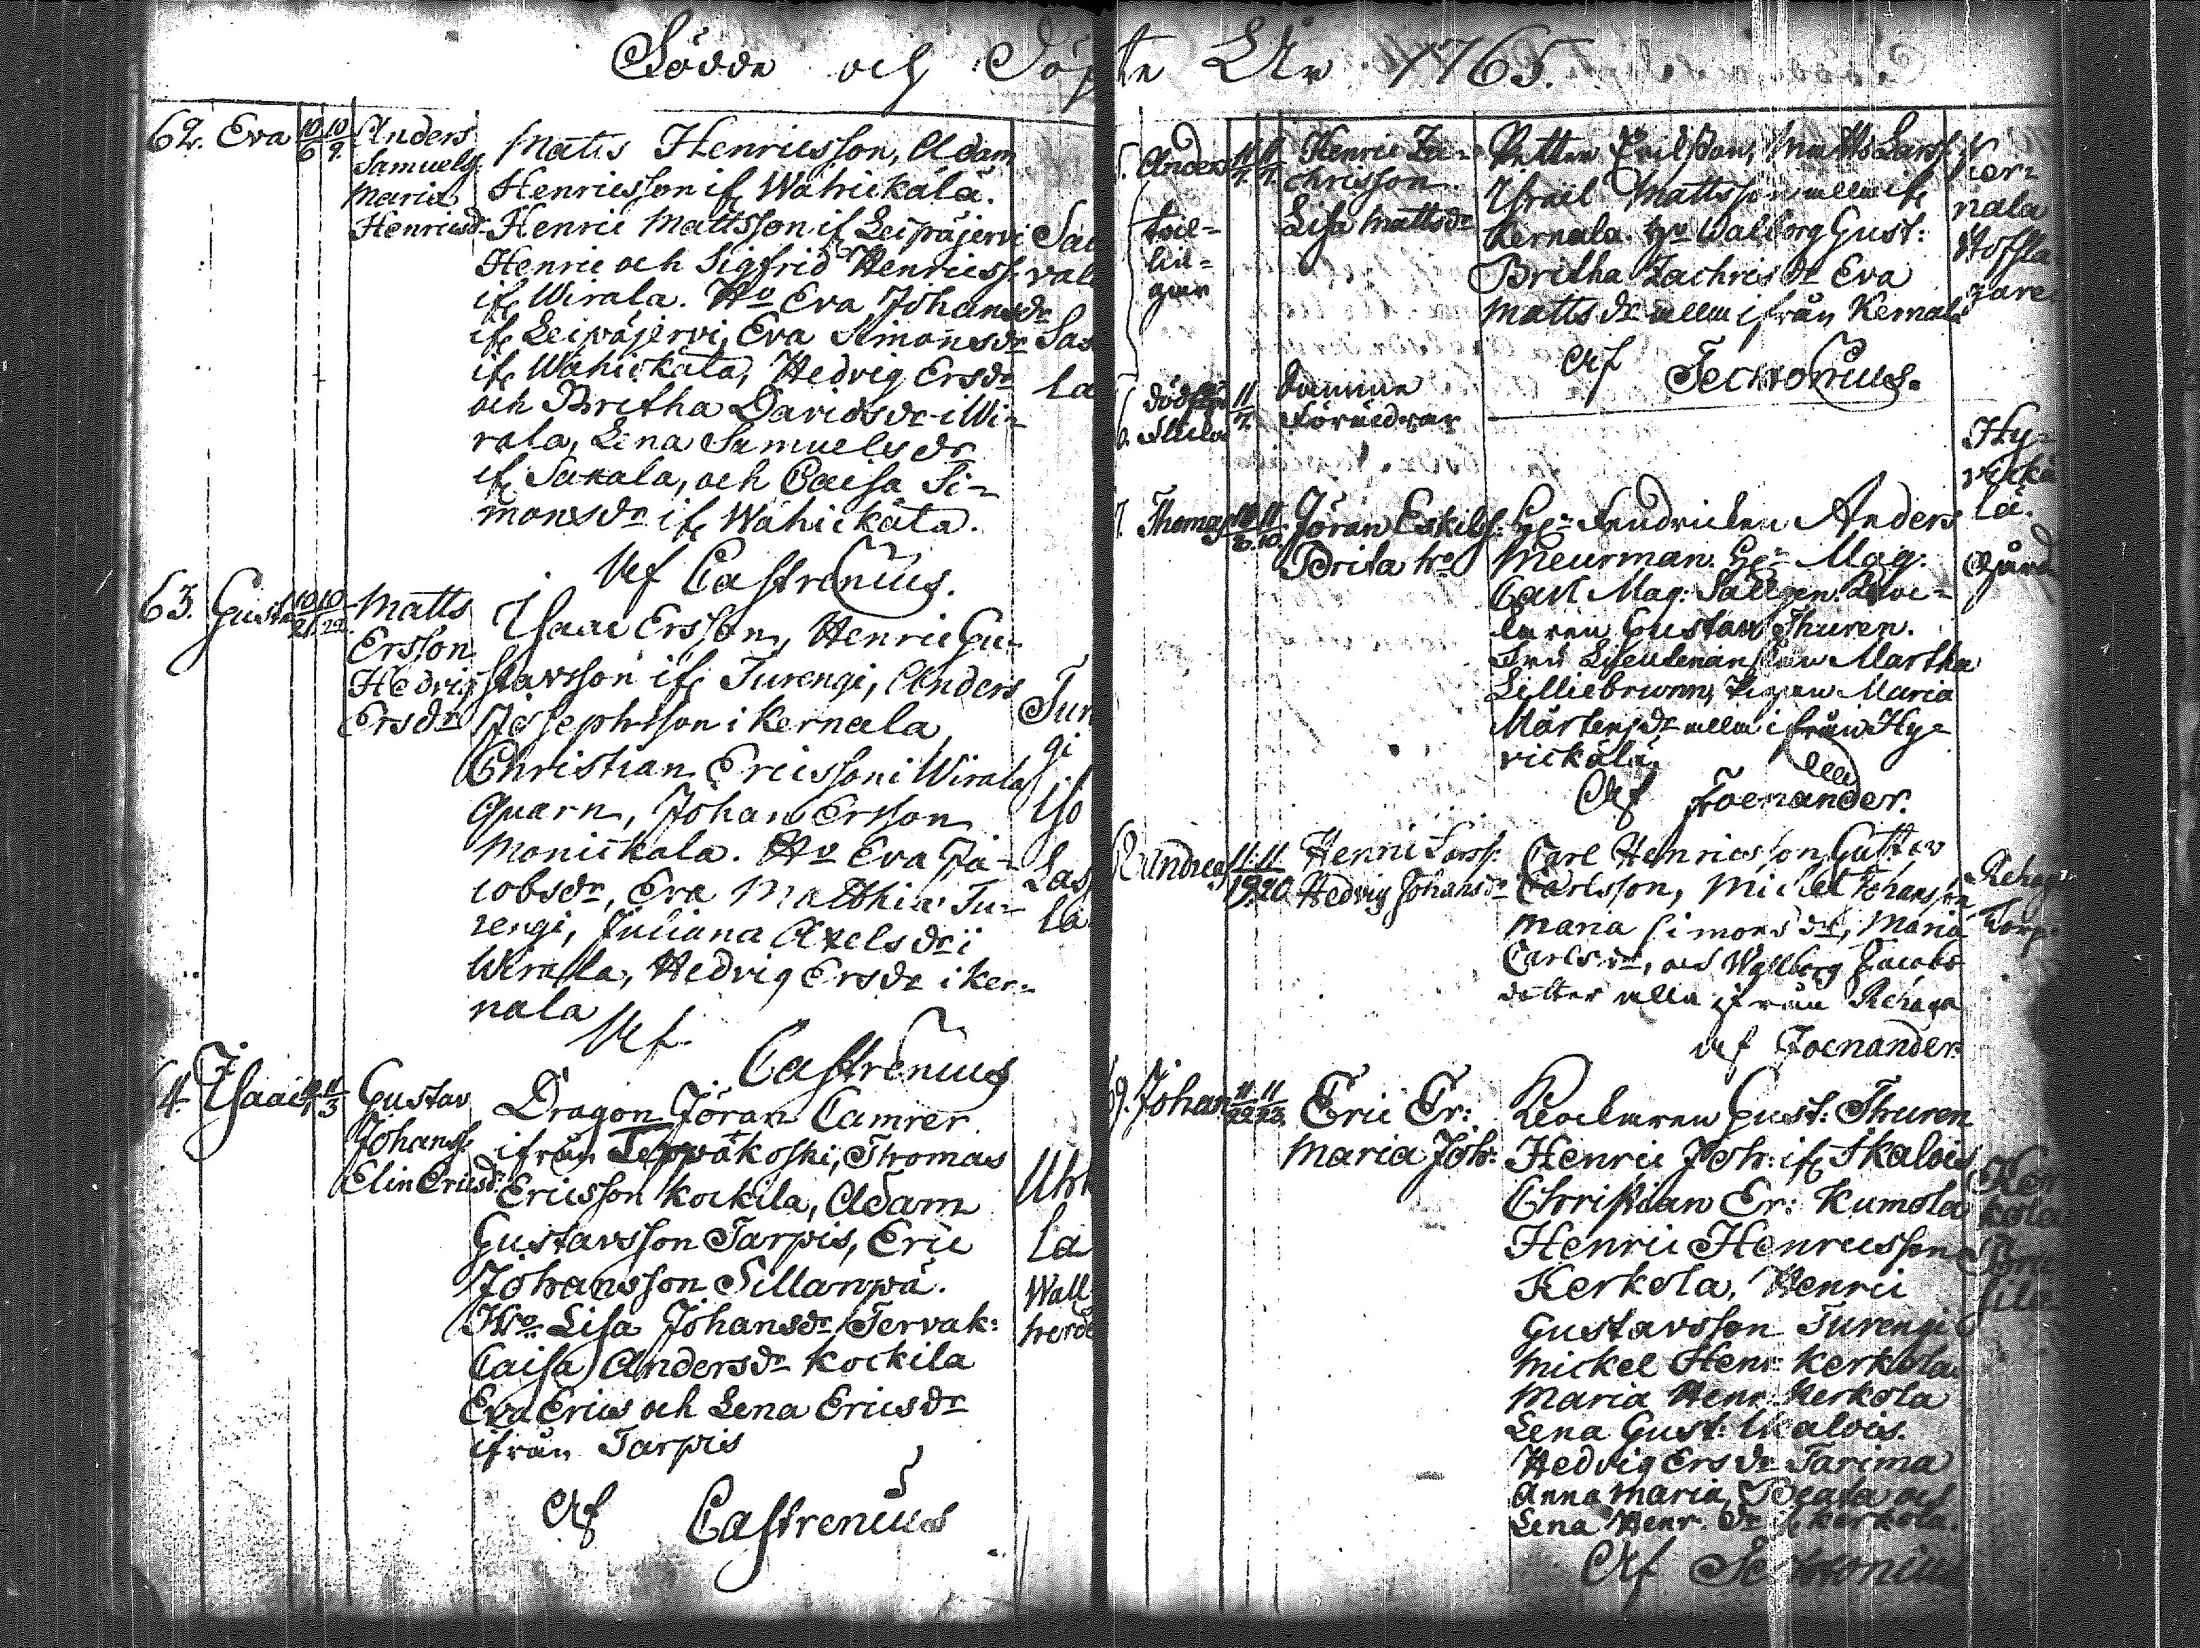 Födde och Döpte År 1765.
62. Eva 10/6 10/9
Anders
Samuels
Maria
Henricsdr
Matts Henricsson, Adam
Henricsson if Wähickälä.
Henric Mattsson if Leipäjervi
Henric och Sigfrid Henricss:
if Wirala. Ho Eva Johansdr
if Leipäjervi, Eva Simonsdr
if Wähickälä, Hedvig Ersdr
och Britha Davidsdr i Wi-
rala, Lena Samuels dr
if Sakala, och Caisa Si-
monsdr if Wähickälä.
Af Castrenius.
63. Gust. 10/21 10/22
Matts
Ersson
Hedvig
Ersdr
Isaac Ersson, Henric Gu-
stavsson if Turengi, Anders
Josephsson i Kernala
Christian Ericsson i Wirala
Quarn, Johan Ersson
Monickala. Ho Eva Ja-
cobsdr, Eva Matthiæ Tu-
rengi, Juliana Axels dr i
Wirala, Hedvig Ersdr i Ker-
nala
Af
Castrenius
Tur
gi
Iso
Las
la
64. Isaac 11/3
Gustav
Johanss.
Elin Ericsd.
Dragon Jöran Camrer
ifrån Terwäkoski, Thomas
Ericsson Kockila, Adam
Gustavsson Tarpis, Eric
Johansson Sillanpä.
Ho Lisa Johansdr Tervak:
Caisa Andersdr Kockila
Eva Erics och Lena Ericsdr
ifrån Tarpis
Af Castrenius
la
Wall
herde
Anders 11/7 11/7
tvil-
lin-
gar
Henric Za-
chrisson
Lisa Mattsdr
Petter Erilsson, Matts Larss
Israel Mattsson alla if
Kernala. Ho Walborg Gust:
Britha Zachris dr Eva
Matts dr alla ifrån Kernala
Af Tectonius.
Ker-
nala
dödfödt
flicka
11/7
Samma
Föräldrar
Thomas 11/8. 11/10.
Jöran Eskilss:
Brita ho
Hr Fendricken Anders
Meurman. Hr Mag.
Carl Mag: Sallgen. Kloc-
karen Gustav Thuren.
Fru Lieutenanskan Martha
Lilliebrunn, Pigan Maria
Mårtensdr alla ifrån Hy-
rickälä.
Af Foenander.
Hy-
rickä
lä.
Andreas 11/19 11/20
Henric Larss:
Hedvig Johansdr
Carl Henricsson Gustav
Carlsson, Mickel Johansson
Maria Simons dr, Maria
Carls dr, och Walborg Jacobs
dotter alla ifrån Rehaga
Af Foenander
Torp.
Johan 11/22 11/23
Eric Er:
Maria Joh:
Klockaren Gust: Thuren
Henric Joh: if Ikalois
Christian Er: Kumola
Henric Henricsson
Kerkola, Henric
Gustavsson Turengi
Mickel Henr: Kerkola
Maria Henr: Kerkola
Lena Gust: Ikalois.
Hedvig Ers dr Tarima
Anna Maria, Beata och
Lena Henr. dr if Kerkola.
Af Tectonius